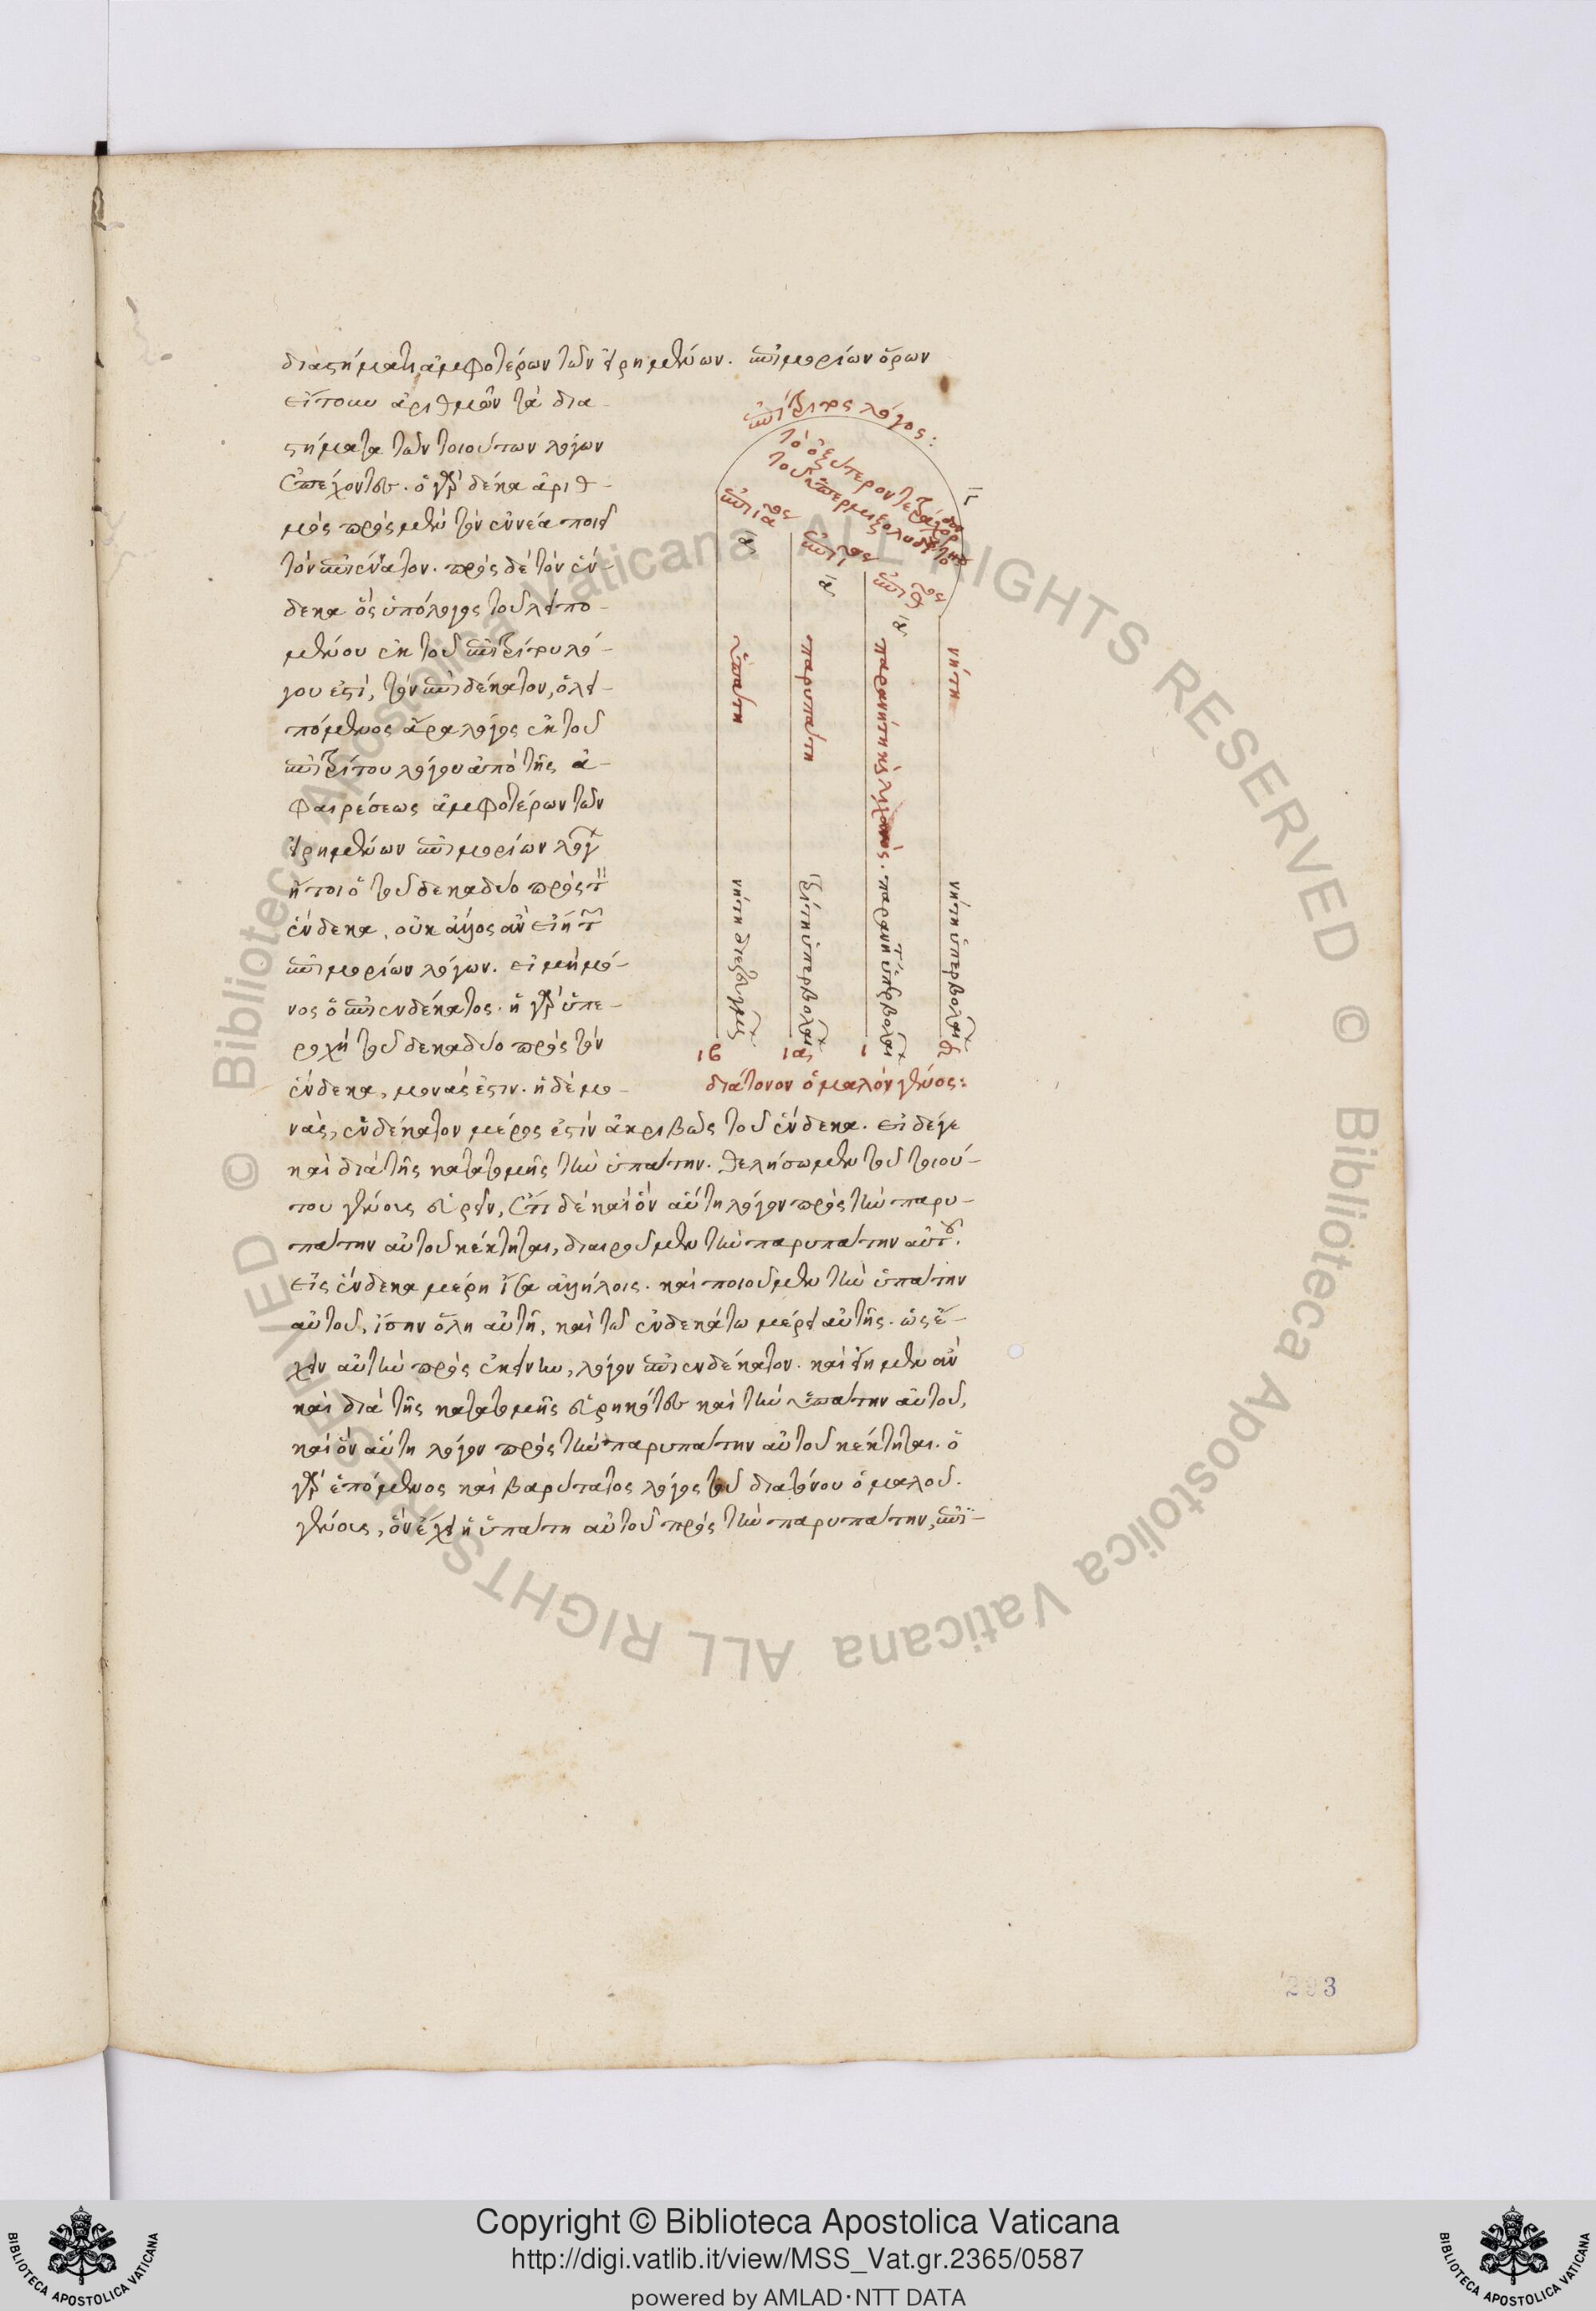 διαστήματι ἀμφοτέρων τῶν εἰρημένων. ἐπιμορίων ὅρων
εἴτουν ἀριθμῶν τὰ δια-
στήματα τῶν τοιούτων λόγων
ἐπέχοντες. ὁ γὰρ δέκα ἀριθ-
μὸς πρὸς μὲν τὸν ἐννέα ποιεῖ
τὸν ἐπιέννατον. πρὸς δὲ τὸν ἕν-
δεκα ὃς ὑπόλογος τοῦ λειπο-
μένου ἐκ τοῦ ἐπιτρίτου λό-
γου ἐστὶ, τὸν ἐπιδέκατον, ὁ λει-
πόμενος ἄρα λόγος ἐκ τοῦ
ἐπιτρίτου λόγου ἀπὸ τῆς ἀ-
φαιρέσεως ἀμφοτέρων τῶν
εἰρημένων ἐπιμορίων λόγων
ἤτοι ὁ τοῦ δεκαδύο πρὸς τὸν
ἕνδεκα, οὐκ ἄλλος ἂν εἴη τῶν
ἐπιμορίων λόγων. εἰ μὴ μό-
νος ὁ ἐπιενδέκατος. ἡ γὰρ ὑπε-
ροχὴ τοῦ δεκαδύο πρὸς τὸν
ἕνδεκα, μονάς ἐστιν. ἡ δὲ μο-
νὰς, ἑνδέκατον μέρος ἐστὶν ἀκριβῶς τοῦ ἕνδεκα. εἰ δέ γε
καὶ διὰ τῆς κατατομῆς τὴν ὑπάτην. θελήσωμεν τοῦ τοιού-
του γένους εὑρεῖν, ἔτι δὲ καὶ ὃν αὕτη λόγον πρὸς τὴν παρυ-
πάτην αὐτοῦ κέκτηται, διαιροῦμεν τὴν παρυπάτην αὐτοῦ.
εἰς ἕνδεκα μέρη ἴσα ἀλλήλοις. καὶ ποιοῦμεν τὴν ὑπάτην
αὐτοῦ, ἴσην ὅλη αὐτῇ, καὶ τῷ ἑνδεκάτω μέρει αὐτῆς. ὡς ἔ-
χειν αὐτὴν πρὸς ἐκείνην, λόγον ἐπιενδέκατον. καὶ εἴημεν ἂν
καὶ διὰ τῆς κατατομῆς εὑρηκότες καὶ τὴν ὑπάτην αὐτοῦ,
καὶ ὃν αὕτη λόγον πρὸς τὴν παρυπάτην αὐτοῦ κέκτηται. ὁ
γὰρ ἑπόμενος καὶ βαρύτατος λόγος τοῦ διατόνου ὁμαλοῦ.
γένους, ὃν ἔχει ἡ ὑπάτη αὐτοῦ πρὸς τὴν παρυπάτην, ἐπι-
ἐπίτριτος λόγος:
τὸ ὀξύτερον τετράχορδον
τοῦ ὑπερμιξολυδίου
ἐπιια
ἐπιι
ἐπιθ
α
α
α
ὑπάτη
παρυπάτη
παρανήτη καὶ λιχανός.
νήτη
νήτη διεζευγμένων
τρίτη ὑπερβολαίων
παρανήτη ὑπερβολαίων
νήτη ὑπερβολαίων
ιβ ια ι θ
διάτονον ὁμαλὸν γένος:
293
Copyright © Biblioteca Apostolica Vaticana
http://digi.vatlib.it/view/MSS_Vat.gr.2365/0587
powered by AMLAD·NTT DATA